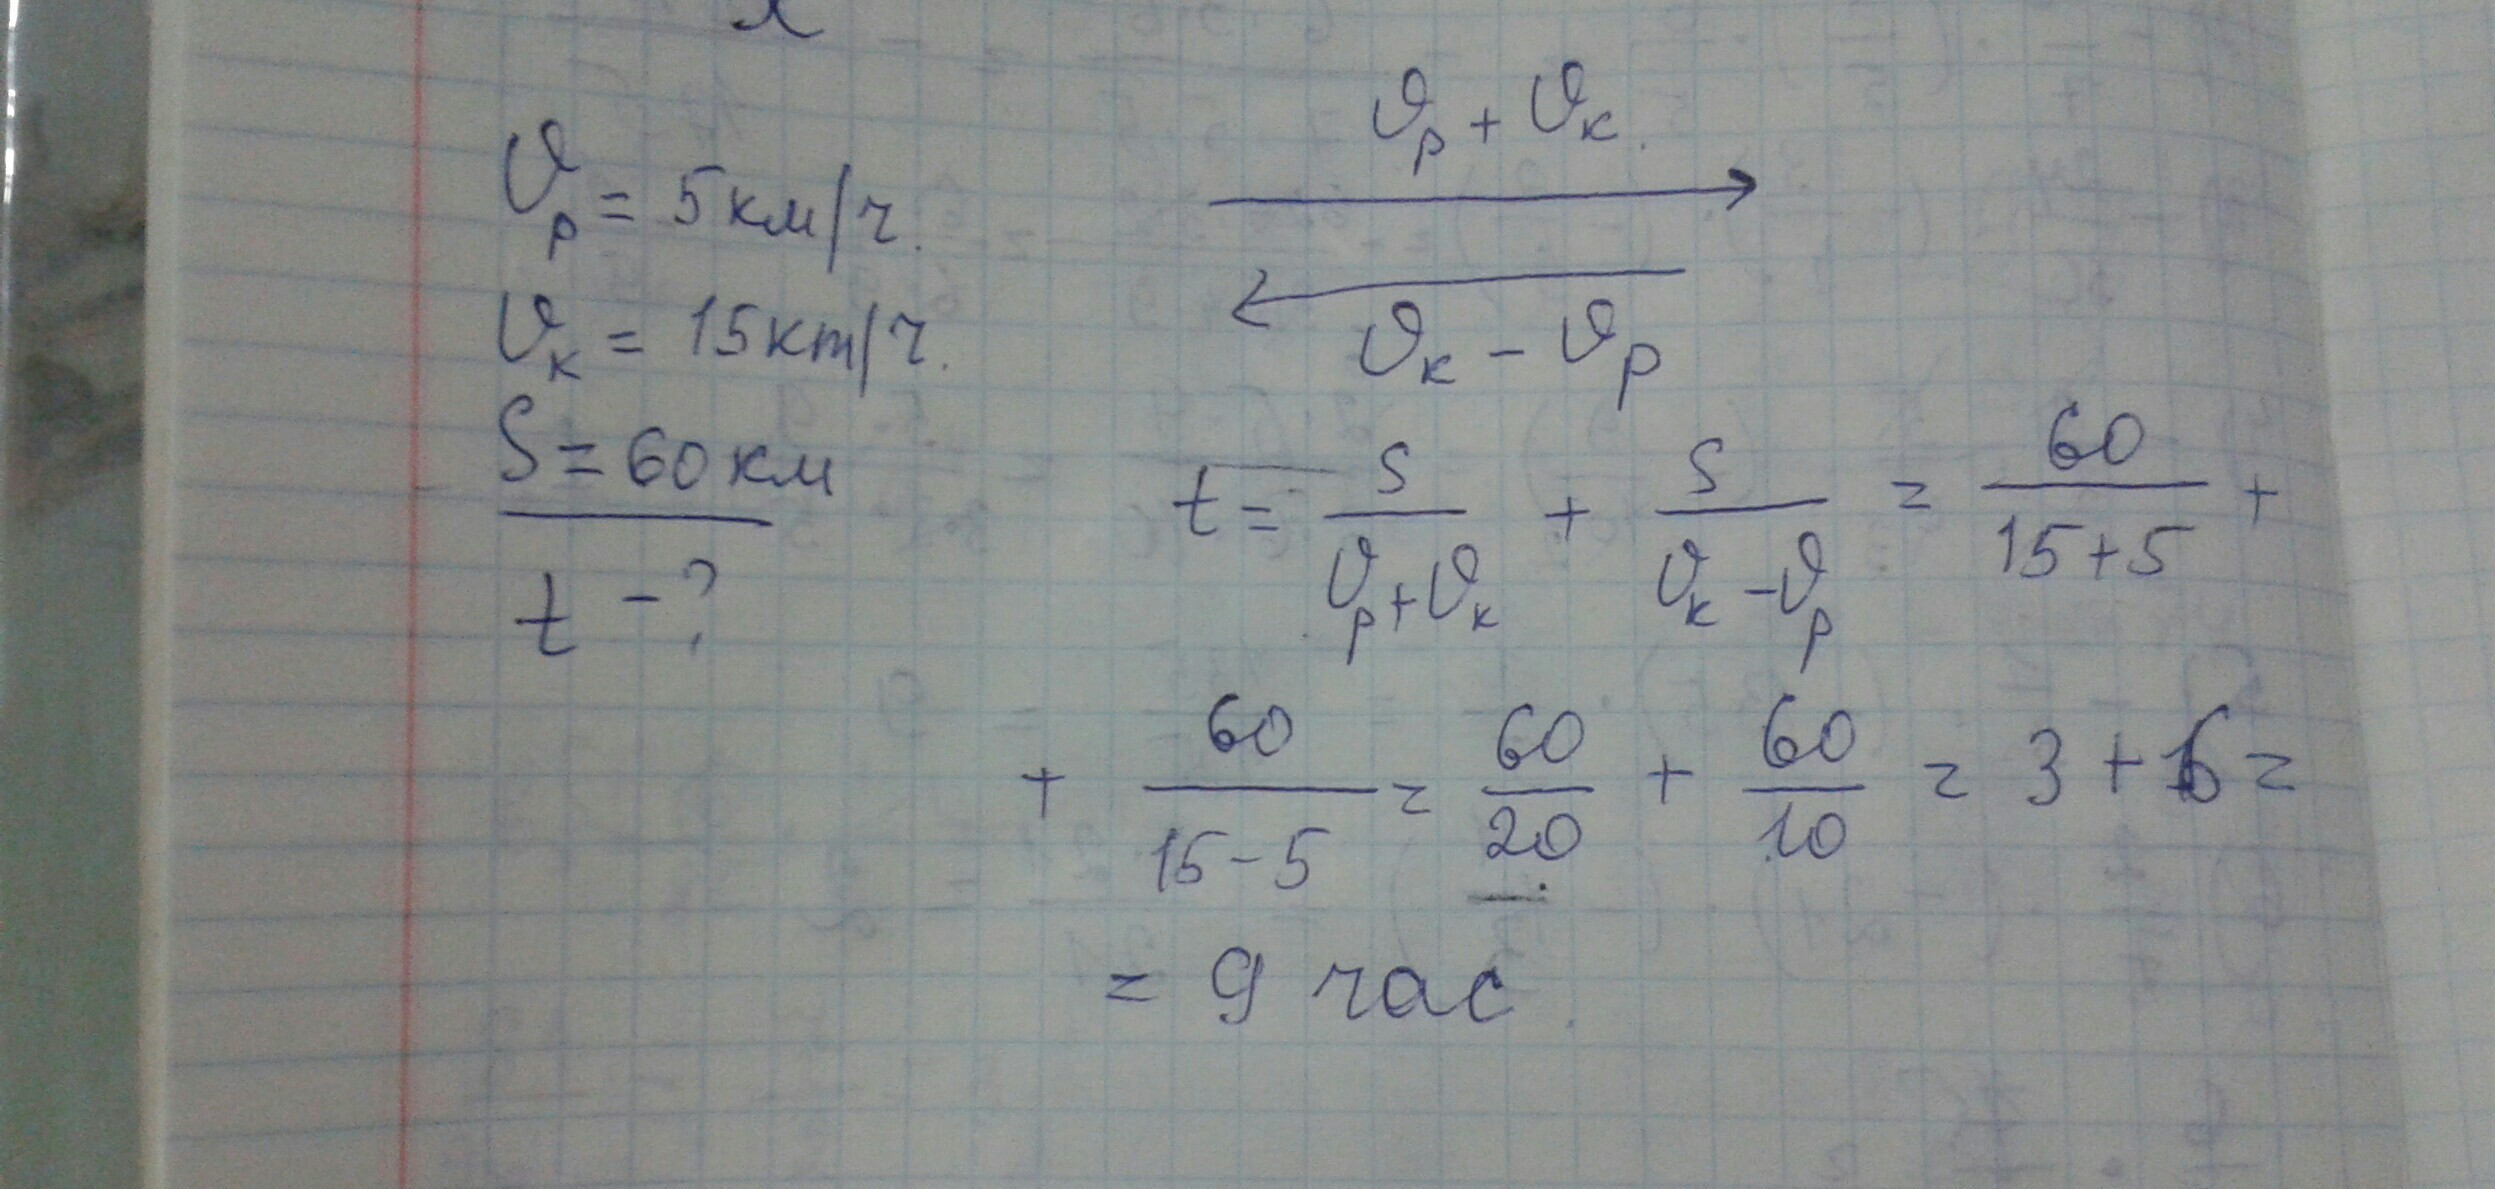 𝜗р = 5 км/ч.
𝜗к = 15 кт/ч.
S = 60 км
t - ?
𝜗р + 𝜗к.
𝜗к - 𝜗р
t = S/(𝜗р + 𝜗к) + S/(𝜗к - 𝜗р) = 60/(15 + 5) +
+ 60/(15 - 5) = 60/20 + 60/10 = 3 + 6 =
= 9 час.